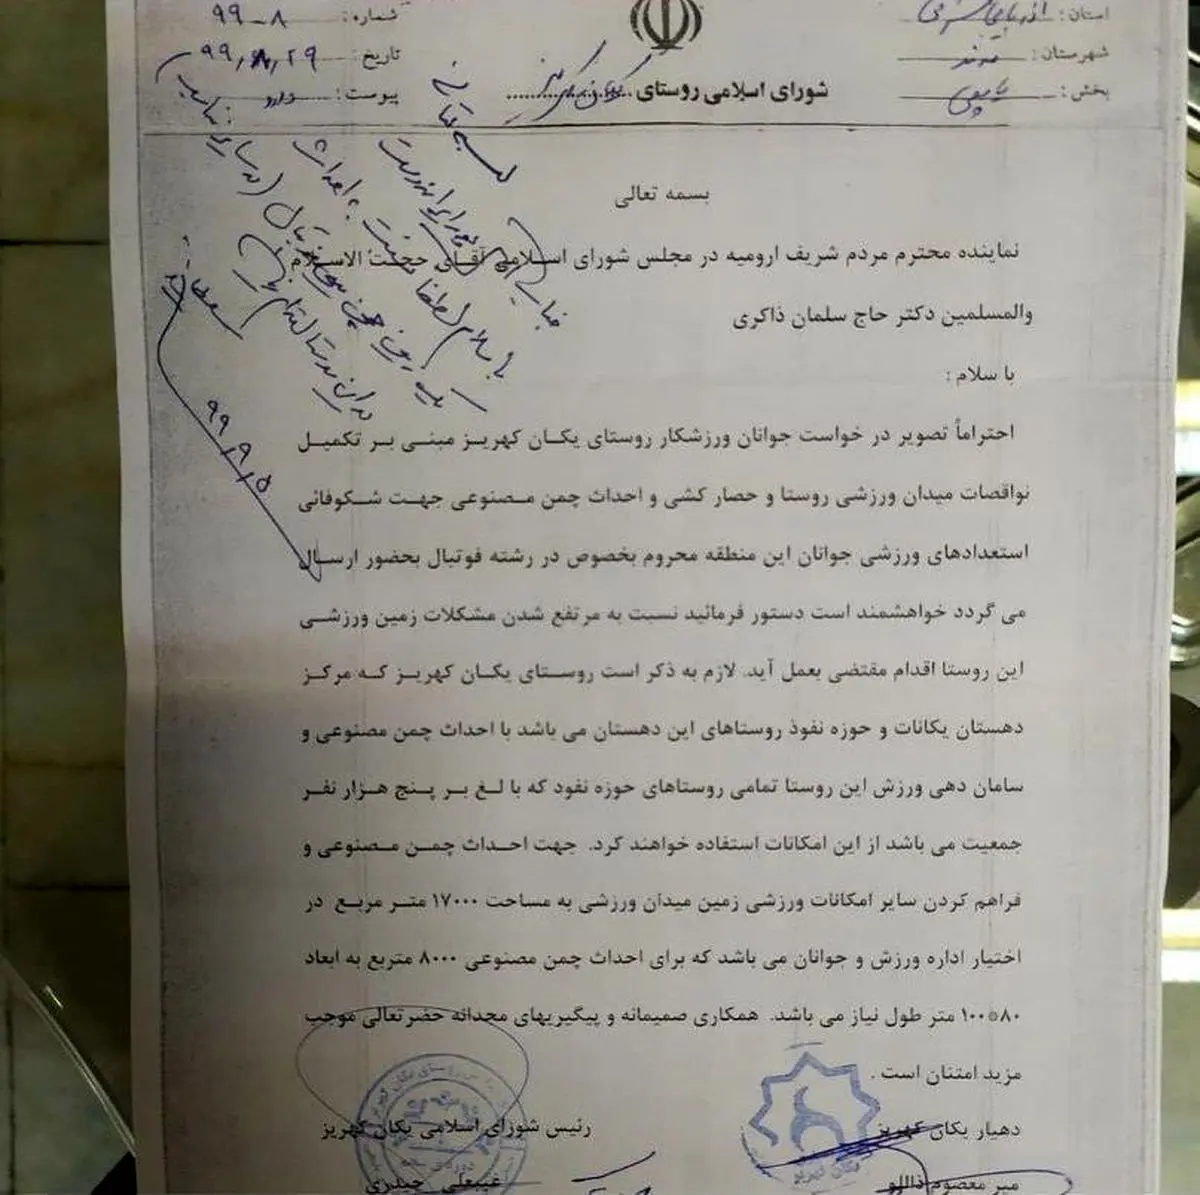 استان: آذربایجان شرقی
شهرستان: مرند
بخش: یامچی
شماره: ۹۹-۸
تاریخ: ۹۹٫۸٫۲۹
پیوست: ندارد
شورای اسلامی روستای یکان کهریز
بسمه تعالی
نماینده محترم مردم شریف ارومیه در مجلس شورای اسلامی آقای حجت الاسلام
والمسلمین دکتر حاج سلمان ذاکری
با سلام :
احتراماً تصویر در خواست جوانان ورزشکار روستای یکان کهریز مبنی بر تکمیل
نواقصات میدان ورزشی روستا و حصار کشی و احداث چمن مصنوعی جهت شکوفائی
استعدادهای ورزشی جوانان این منطقه محروم بخصوص در رشته فوتبال بحضور ارسال
می گردد خواهشمند است دستور فرمائید نسبت به مرتفع شدن مشکلات زمین ورزشی
این روستا اقدام مقتضی بعمل آید. لازم به ذکر است روستای یکان کهریز که مرکز
دهستان یکانات و حوزه نفوذ روستاهای این دهستان می باشد با احداث چمن مصنوعی و
سامان دهی ورزش این روستا تمامی روستاهای حوزه نفود که با لغ بر پنج هزار نفر
جمعیت می باشد از این امکانات استفاده خواهند کرد. جهت احداث چمن مصنوعی و
فراهم کردن سایر امکانات ورزشی زمین میدان ورزشی به مساحت ۱۷۰۰۰ متر مربع در
اختیار اداره ورزش و جوانان می باشد که برای احداث چمن مصنوعی ۸۰۰۰ متربع به ابعاد
۸۰*۱۰۰ متر طول نیاز می باشد. همکاری صمیمانه و پیگیریهای مجدانه حضرتعالی موجب
مزید امتنان است .
دهیار یکان کهریز
رئیس شورای اسلامی یکان کهریز
میر معصوم
حیدری
بسمه تعالی
با سلام لطفا نسبت به احداث
۹۹٫۹٫۵